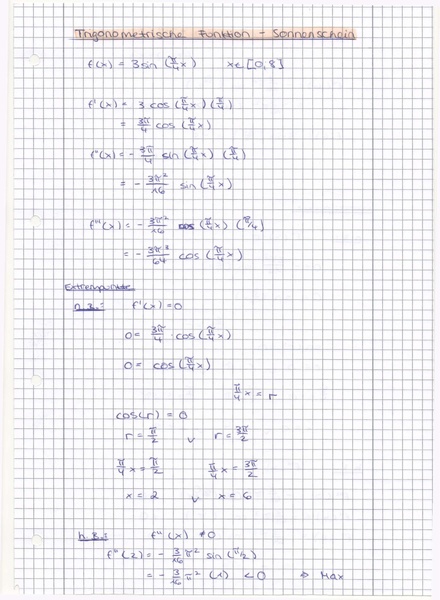 Trigonometrische Funktion - Sonnenschein
f(x) = 3 sin (π/4 x)    x∈ [0,8]
f'(x) = 3 cos (π/4 x) (π/4)
= 3π/4 cos (π/4 x)
f''(x) = - 3π/4 sin (π/4 x) (π/4)
= - 3π²/16 sin (π/4 x)
f'''(x) = - 3π²/16 cos (π/4 x) (π/4)
= - 3π³/64 cos (π/4 x)
Extrempunkte
n.B.: f'(x) = 0
0 = 3π/4 · cos (π/4 x)
0 = cos (π/4 x)
π/4 x = r
cos(r) = 0
r = π/2 v r = 3π/2
π/4 x = π/2    π/4 x = 3π/2
x = 2 v x = 6
h.B.: f''(x) ≠ 0
f''(2) = - 3/16 π² sin (π/2)
= - 3/16 π² (1) < 0 ⇒ Max